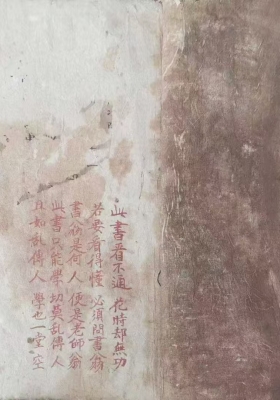 此書看不通 花時却無功
若要看得懂 必須問書翁
書翁是何人 便是老師翁
此書只能學 切莫乱傳人
且如乱傳人 學也一定空